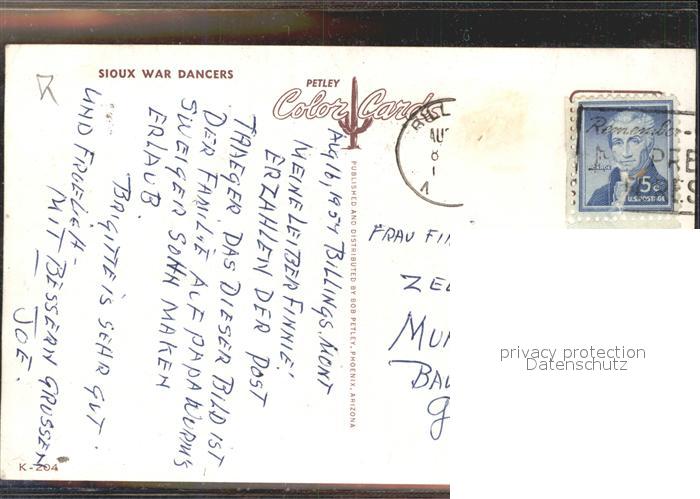 SIOUX WAR DANCERS
PETLEY
Color Card
PUBLISHED AND DISTRIBUTED BY BOB PETLEY, PHOENIX, ARIZONA
AUG 16, 1954 BILLINGS, MONT
MEINE LEIBER FINNIE!
ERZAHLEN DER POST
TRAEGER, DAS DIESER BILD IST
DER FAMILIE ALF PAPA WURMS
SWEIGER SOHN MAKEN
ERLAUB
BRGITTE IS SEHR GUT.
UND FROELICH -
MIT BESSERN GRUSSEN
JOE.
K-204
AU
8
1
Remember
PRE
5¢
U.S. POSTAGE
FRAU FI
ZE
MU
BA
G
privacy protection
Datenschutz